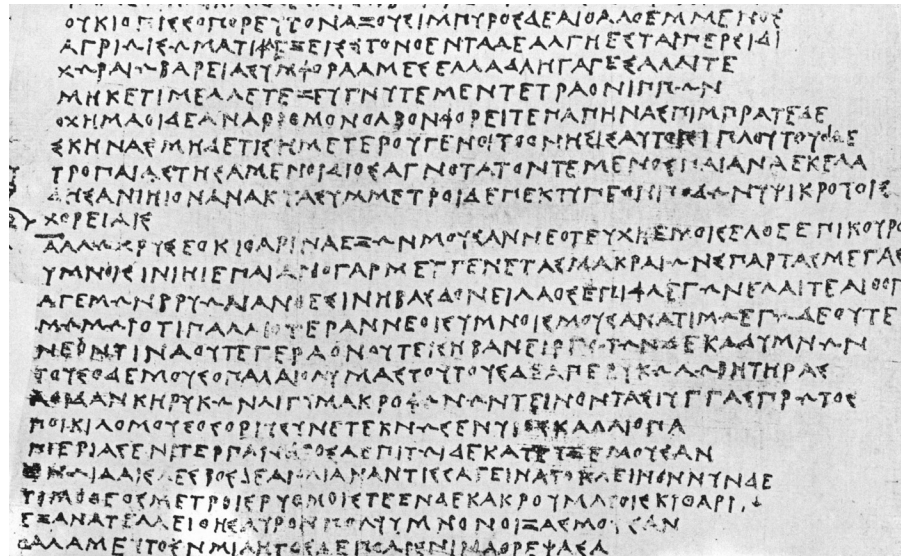 ΟΥΚΙΟΠΙϹϹΟΠΟΡΕΥΤΟΝΑΞΟΥϹΙΜΠΥΡΟϹΔΕΑΙΘΑΛΟΕΜΜΕΝΟϹ
ΑΓΡΙΩΙϹΩΜΑΤΙΦΛΕΞΕΙϹϹΤΟΝΟΕΝΤΑΔΕΑΛΓΗΕϹΤΑΙΠΕΡϹΙΔΙ
ΧΩΡΑΙΩΒΑΡΕΙΑϹΥΜΦΟΡΑΑΜΕϹΕΛΛΑΔΑΗΓΑΓΕϹΑΛΛΙΤΕ
ΜΗΚΕΤΙΜΕΛΛΕΤΕΖΕΥΓΝΥΤΕΜΕΝΤΕΤΡΑΟΝΙΠΠΩΝ
ΟΧΗΜΑΟΙΔΕΑΝΑΡΙΘΜΟΝΟΛΒΟΝΦΟΡΕΙΤΕΠΑΠΗΝΑϹΠΙΜΠΡΑΤΕΔΕ
ϹΚΗΝΑϹΜΗΔΕΤΙϹΗΜΕΤΕΡΟΥΓΕΝΟΙΤΟϹΝΗϹΙϹΑΥΤΟΙϹΙΠΛΟΥΤΟΥΟΙΔΕ
ΤΡΟΠΑΙΑϹΤΗϹΑΜΕΝΟΙΔΙΟϹΑΓΝΟΤΑΤΟΝΤΕΜΕΝΟϹΠΑΙΑΝΑΕΚΕΛΑ
ΔΗϹΑΝΙΗΙΟΝΑΝΑΚΤΑϹΥΜΜΕΤΡΟΙΔΕΠΕΚΤΥΠΕΟΝΠΟΔΩΝΥΨΙΚΡΟΤΟΙϹ
ΧΟΡΕΙΑΙϹ
ΑΛΛΩΧΡΥϹΕΟΚΙΘΑΡΙΝΑΕΞΩΝΜΟΥϹΑΝΝΕΟΤΕΥΧΗΕΜΟΙϹΕΛΘΕΠΙΚΟΥΡΟ
ΥΜΝΟΙϹΙΝΙΗΙΕΠΑΙΑΝΟΓΑΡΜΕΥΓΕΝΕΤΑϹΜΑΚΡΑΙΩΝϹΠΑΡΤΑϹΜΕΓΑϹ
ΑΓΕΜΩΝΒΡΥΩΝΑΝΘΕϹΙΝΗΒΑϹΔΟΝΕΙΛΑΟϹΕΠΙΦΛΕΓΩΝΕΛΑΙΤΕΑΙΘΟΠ
ΜΩΜΩΙΟΤΙΠΑΛΑΙΟΤΕΡΑΝΝΕΟΙϹΥΜΝΟΙϹΜΟΥϹΑΝΑΤΙΜΩΕΓΩΔΕΟΥΤΕ
ΝΕΟΝΤΙΝΑΟΥΤΕΓΕΡΑΟΝΟΥΤΕΙϹΗΒΑΝΕΙΡΓΩΤΩΝΔΕΚΑΔΥΜΝΩΝ
ΤΟΥϹΟΔΕΜΟΥϹΟΠΑΛΑΙΟΛΥΜΑϹΤΟΥΤΟΥϹΔΕΑΠΕΡΥΚΩΛΩΒΗΤΗΡΑϹ
ΑΟΙΔΑΝΚΗΡΥΚΩΝΛΙΓΥΜΑΚΡΟΦΩΝΩΝΤΕΙΝΟΝΤΑϹΙΥΓΓΑϹΠΡΩΤΟϹ
ΠΟΙΚΙΛΟΜΟΥϹΟϹΟΡΙΥϹΥΝΕΤΕΚΝΩϹΕΝΥΙΟϹΚΑΛΛΙΟΠΑ
ΠΙΕΡΙΑϹΕΝΙΤΕΡΠΑΝΔΡΟϹΔΕΠΙΤΩΙΔΕΚΑΤΕΥΞΕΜΟΥϹΑΝ
ΕΝΩΙΔΑΙϹΛΕϹΒΟϹΔΕΑΙΟΛΙΑΝΑΝΤΙϹϹΑΓΕΙΝΑΤΟΚΛΕΙΝΟΝΝΥΝΔΕ
ΤΙΜΟΘΕΟϹΜΕΤΡΟΙϹΡΥΘΜΟΙϹΤΕΕΝΔΕΚΑΚΡΟΥΜΑΤΟΙϹΚΙΘΑΡΙ
ΕΞΑΝΑΤΕΛΛΕΙΘΗϹΑΥΡΟΝΠΟΛΥΥΜΝΟΝΟΙΞΑϹΜΟΥϹΑΝ
ΘΑΛΑΜΕΥΤΟΝΜΙΛΗΤΟϹΔΕΠΟΛΙϹΝΙΝΑΘΡΕΨΑϹΑ